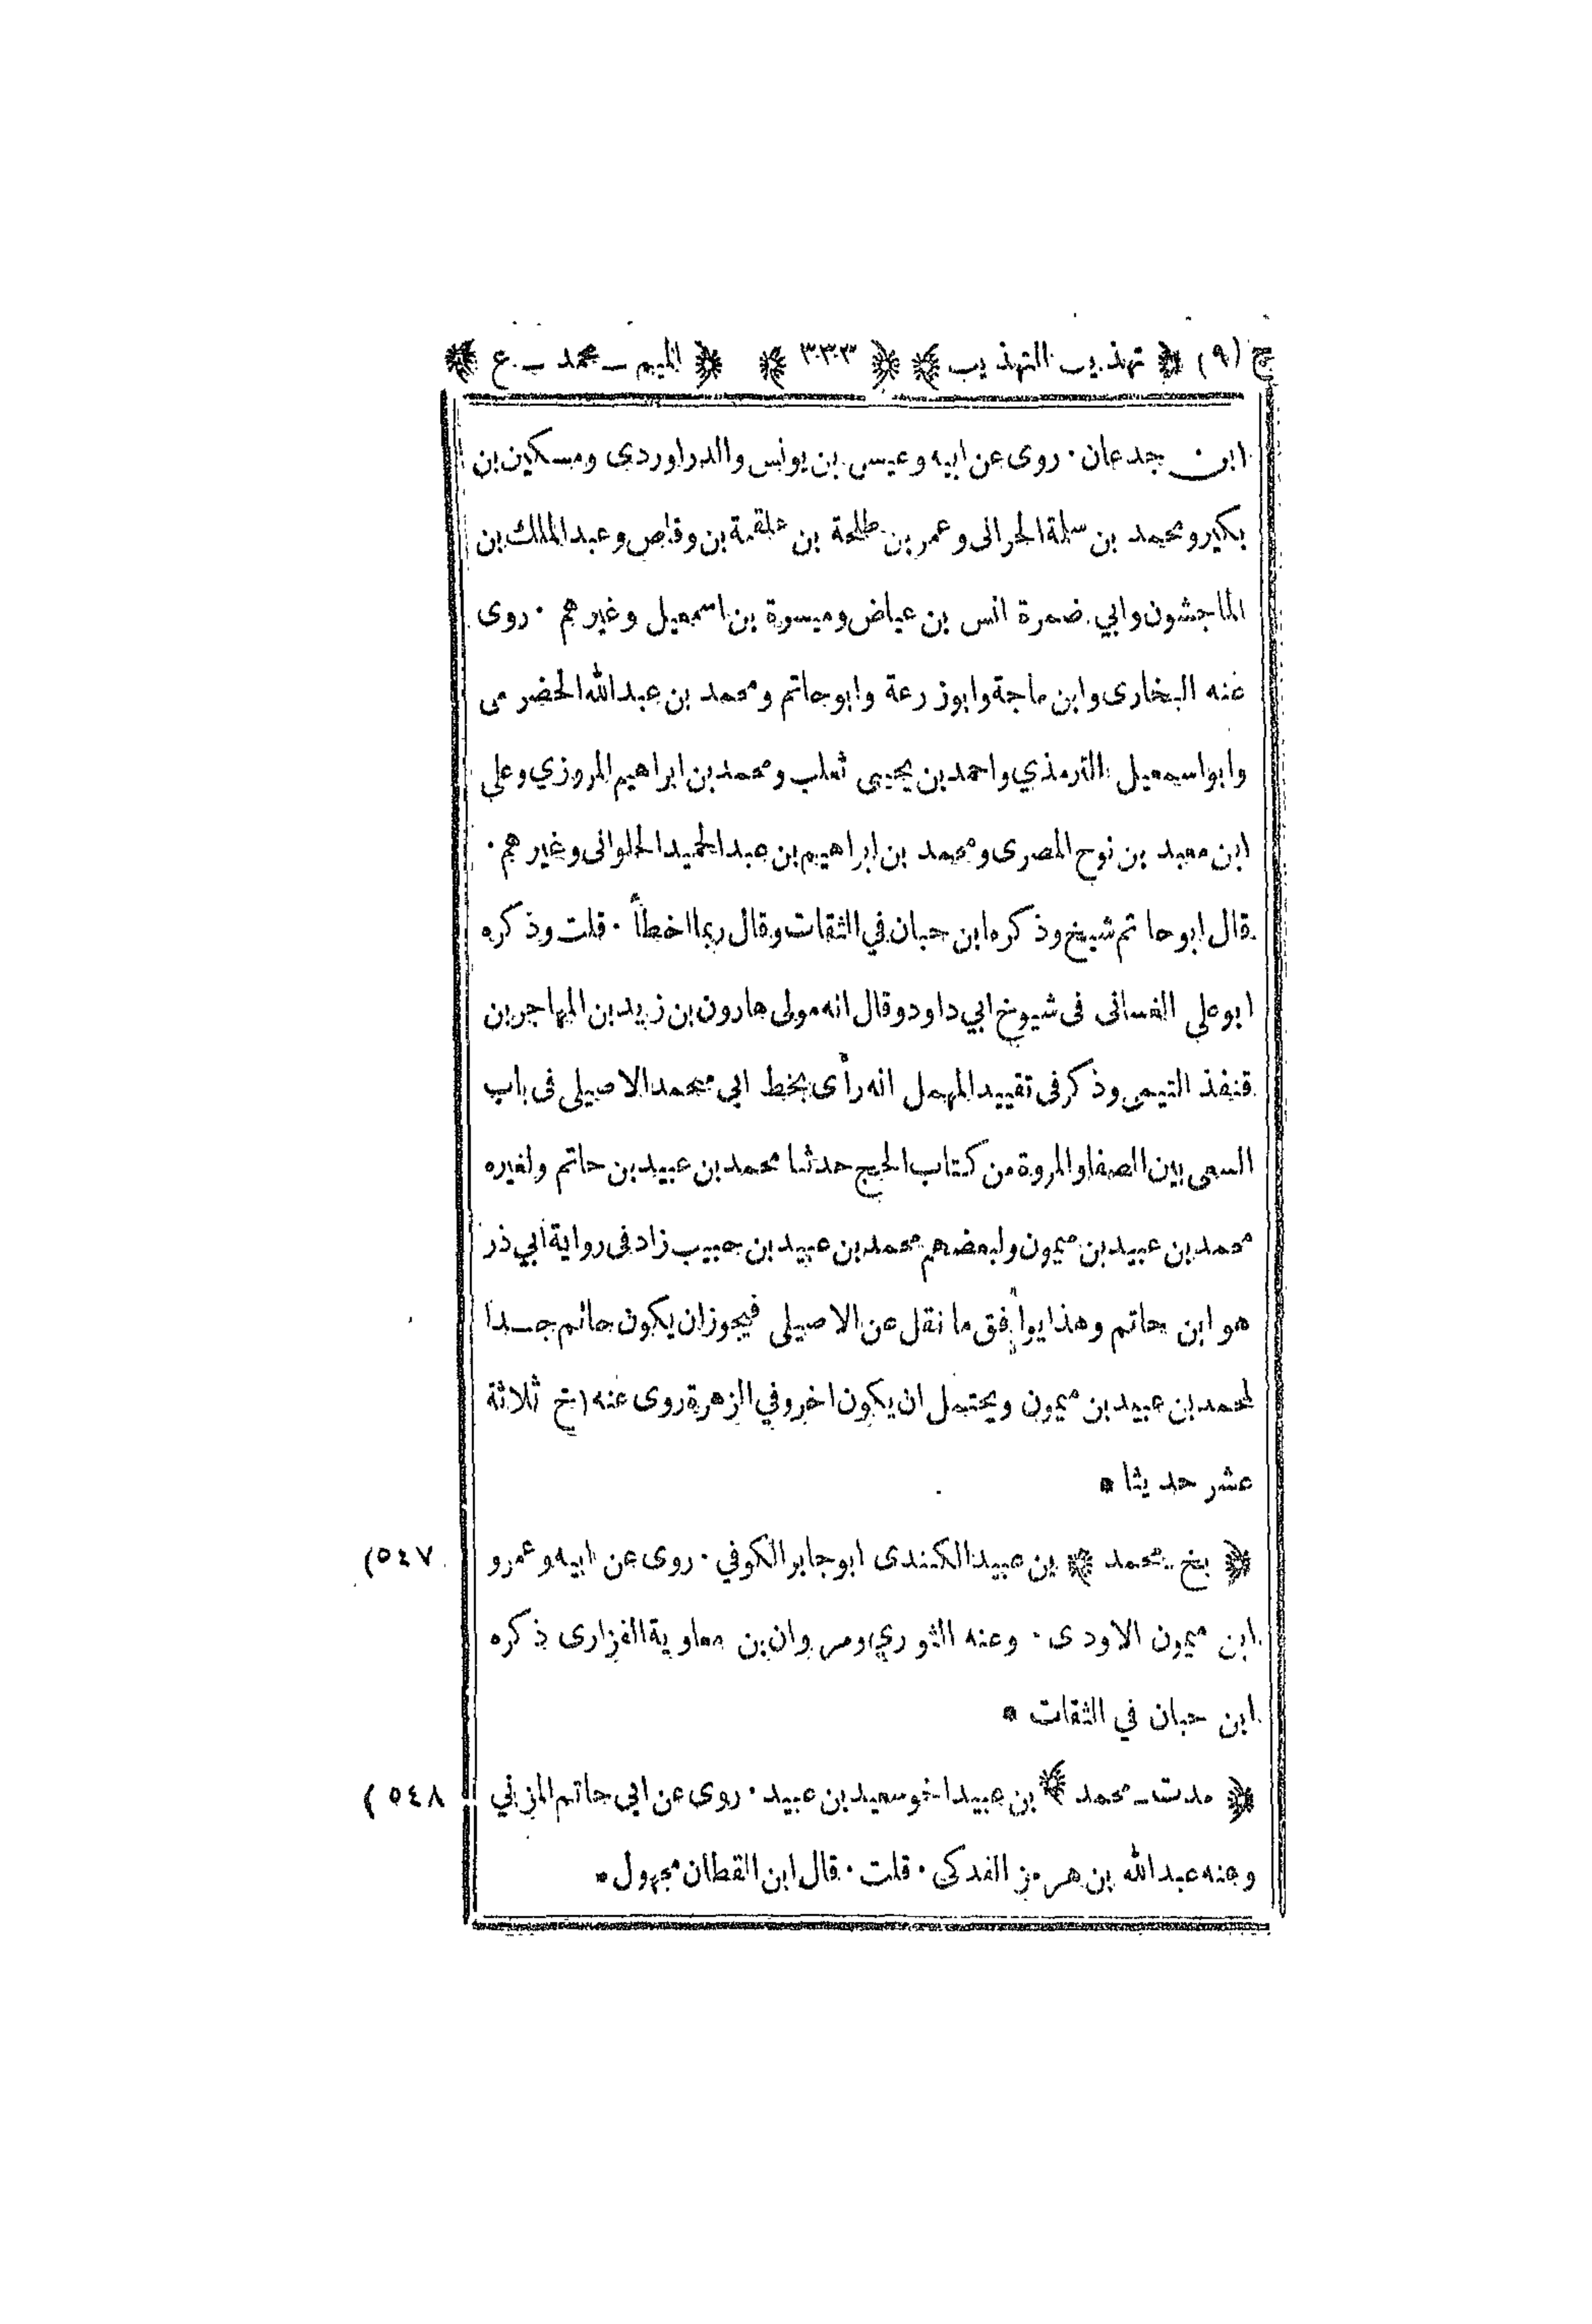 ج (٩) ﴿ تهذيب التهذيب ﴾ ﴿ ٣٣٣ ﴾ ﴿ الميم ـ محمد ـ ع ﴾
ابن جدعان · روى عن ابيه وعيسى بن يونس والدراوردى ومسكين بن
بكير ومحمد بن سلمة الحرانى وعمر بن طلحة بن علقمة بن وقاص وعبد الملك بن
الماجشون وابي ضمرة انس بن عياض وميسرة بن اسمعيل وغيرهم · روى
عنه البخارى وابن ماجة وابوزرعة وابوحاتم ومحمد بن عبد الله الحضرمى
وابو اسمعيل الترمذي واحمد بن يحيى ثعلب ومحمد بن ابراهيم المروزي وعلي
ابن معبد بن نوح المصرى ومحمد بن ابراهيم بن عبد الحميد الحلوانى وغيرهم ·
قال ابو حاتم شيخ وذكره ابن حبان في الثقات وقال ربما اخطأ · قلت وذكره
ابو علي الغسانى فى شيوخ ابي داود وقال انه مولى هارون بن زيد بن المهاجر بن
قنفذ التيمى وذكر فى تقييد المهمل انه رأى بخط ابي محمد الاصيلى فى باب
السعى بين الصفا والمروة من كتاب الحج حدثنا محمد بن عبيد بن حاتم ولغيره
محمد بن عبيد بن ميمون ولبعضهم محمد بن عبيد بن حبيب زاد فى رواية ابي ذر
هو ابن حاتم وهذا يوافق ما نقل عن الاصيلى فيجوز ان يكون حاتم جدا
لمحمد بن عبيد بن ميمون ويحتمل ان يكون اخر وفي الزهرة روى عنه (خ ثلاثة
عشر حديثا *
﴿ بخ ـ محمد ﴾ بن عبيد الكندى ابو جابر الكوفي · روى عن ابيه وعمرو (٥٤٧
ابن ميمون الاودى · وعنه الثوري ومروان بن معاوية الفزارى ذكره
ابن حبان في الثقات *
﴿ مدت ـ محمد ﴾ بن عبيد اخو سعيد بن عبيد · روى عن ابى حاتم المزني (٥٤٨
وعنه عبد الله بن هرمز الفدكى · قلت · قال ابن القطان مجهول *